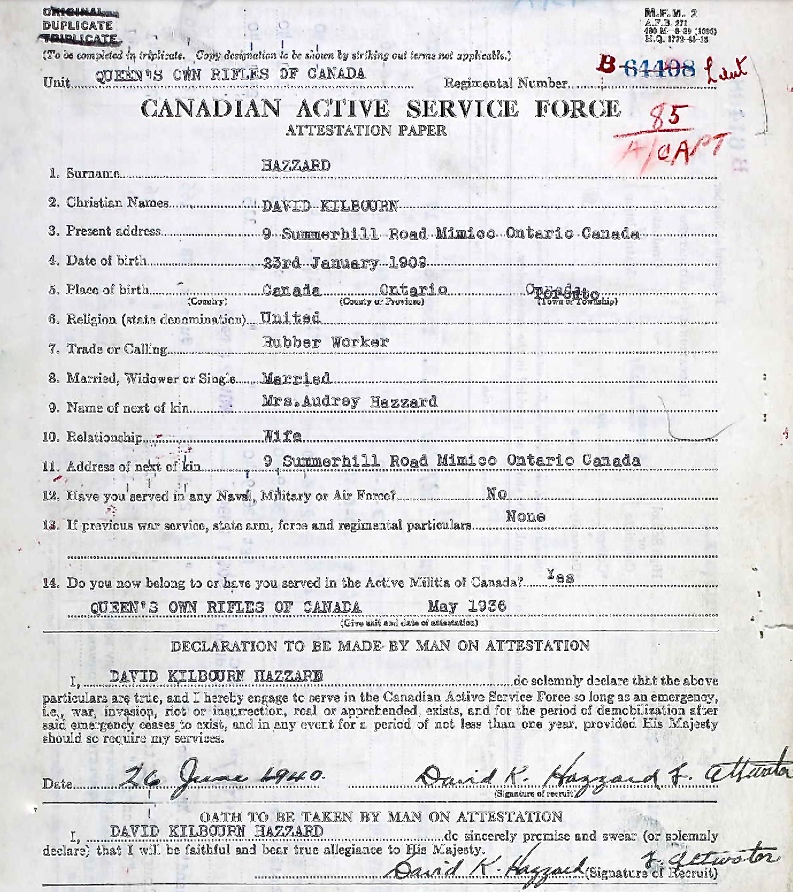 ORIGINAL
DUPLICATE
TRIPLICATE
M.F.M. 2
A.F.B. 271
(To be completed in triplicate. Copy designation to be shown by striking out terms not applicable.)
Unit QUEEN'S OWN RIFLES OF CANADA Regimental Number B-64498 Lieut
CANADIAN ACTIVE SERVICE FORCE
ATTESTATION PAPER
85
A/CAPT
1. Surname HAZZARD
2. Christian Names DAVID KILBOURN
3. Present address 9 Summerhill Road Mimico Ontario Canada
4. Date of birth 23rd January 1909
5. Place of birth Canada Ontario Canada Toronto
(Country) (County or Province) (Town or Township)
6. Religion (state denomination) United
7. Trade or Calling Rubber Worker
8. Married, Widower or Single Married
9. Name of next of kin Mrs.Audrey Hazzard
10. Relationship Wife
11. Address of next of kin 9 Summerhill Road Mimico Ontario Canada
12. Have you served in any Naval, Military or Air Force? No
13. If previous war service, state arm, force and regimental particulars None
14. Do you now belong to or have you served in the Active Militia of Canada? Yes
QUEEN'S OWN RIFLES OF CANADA May 1936
(Give unit and date of attestation)
DECLARATION TO BE MADE BY MAN ON ATTESTATION
I, DAVID KILBOURN HAZZARD do solemnly declare that the above
particulars are true, and I hereby engage to serve in the Canadian Active Service Force so long as an emergency,
i.e., war, invasion, riot or insurrection, real or apprehended, exists, and for the period of demobilization after
said emergency ceases to exist, and in any event for a period of not less than one year, provided His Majesty
should so require my services.
Date 26 June 1940. David K. Hazzard F. Attwater
(Signature of recruit)
OATH TO BE TAKEN BY MAN ON ATTESTATION
I, DAVID KILBOURN HAZZARD do sincerely promise and swear (or solemnly
declare) that I will be faithful and bear true allegiance to His Majesty.
David K. Hazzard (Signature of Recruit) F. Attwater